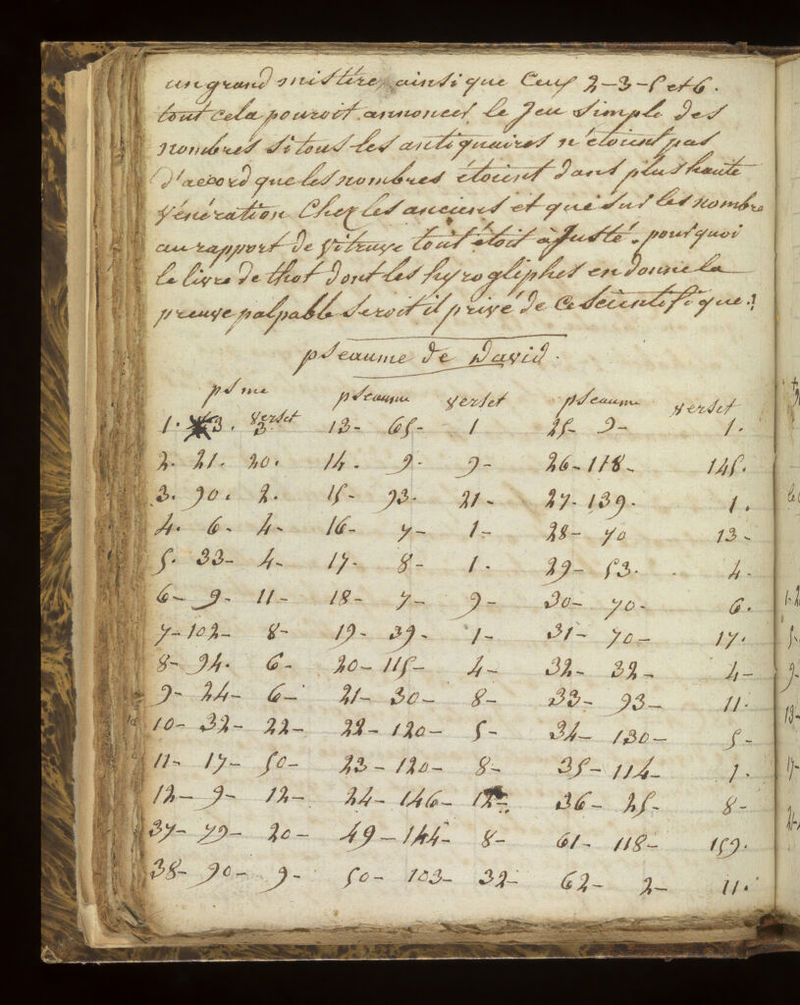 un grand mistère, ainsi que Ceux 2-3-5 et 6.
tout cela pouroit annoncer le Jeu Simple des
nombres Si tous les antiquaires n'étoient pas
d'accord que les nombres étoient dans plus haute
Vénération Chez les anciens et que Sur les nombre
au rapport de Vitruve tout étoit ajusté. pourquoi
le livre de thot dont les hyrogliphes en donne la
preuve palpable Seroit il privé de Ce Scientifique?
pseaume de David.
psme verset pseaume verset pseaume verset
1. 3. 3. 13- 65- 1 25- 9- 1.
2. 21. 20. 14. 9. 9- 26- 118- 145.
3. 90. 2. 15- 93. 21- 27- 139. 1.
4. 6- 4- 16- 7- 1- 28- 70 13-
5. 33- 4- 17- 8- 1. 29- 53. 4.
6- 9- 11- 18- 7- 9- 30- 70- 6.
7- 102- 8- 19- 39- 1- 31- 70- 17.
8- 94. 6- 20- 115- 4- 32- 32- 4-
9- 24- 6- 21- 30- 8- 33- 93- 11.
10- 32- 22- 22- 120- 5- 34- 130- 5-
11- 17- 50- 23- 120- 8- 35- 114- 7.
12- 9- 12- 24- 146- 36- 25- 8-
37- 79- 20- 49- 144- 8- 61- 118- 159.
38- 90- 9- 50- 103- 32- 62- 2- 11.